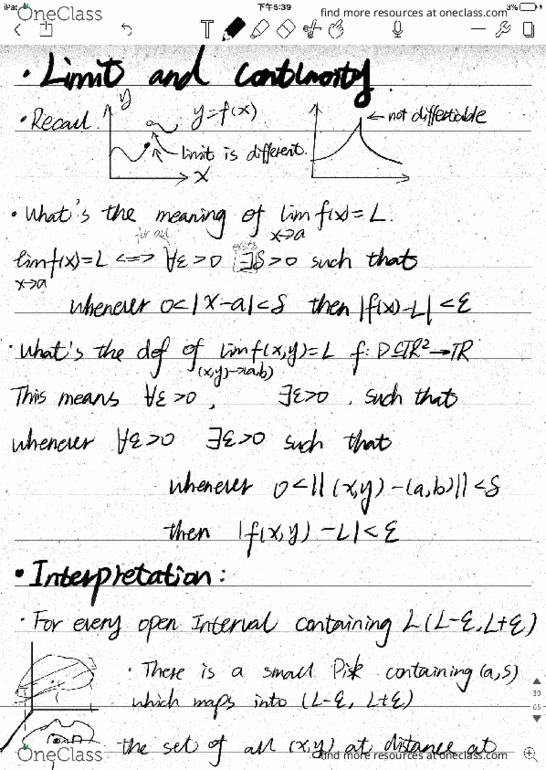 OneClass
下午5:39
find more resources at oneclass.com
3%
T
• Limit and Continuity
• Recall. y y=f(x) ← not diffectiable
limit is different.
x
• What's the meaning of lim f(x)=L.
x→a
for all exists
lim f(x)=L <=> ∀ε>0 ∃δ>0 such that
x→a
whenever 0<|x-a|<δ then |f(x)-L|<ε
• What's the def of lim f(x,y)=L f: D⊆IR²→IR
(x,y)→(a,b)
This means ∀ε>0, ∃ε>0, such that
whenever ∀ε>0 ∃ε>0 such that
whenever 0<||(x,y)-(a,b)||<δ
then |f(x,y)-L|<ε
• Interpretation:
• For every open Interval containing L(L-ε,L+ε)
• There is a small Disk containing (a,b)
which maps into (L-ε, L+ε)
the set of all (x,y) at distance at
30
65
OneClass
find more resources at oneclass.com